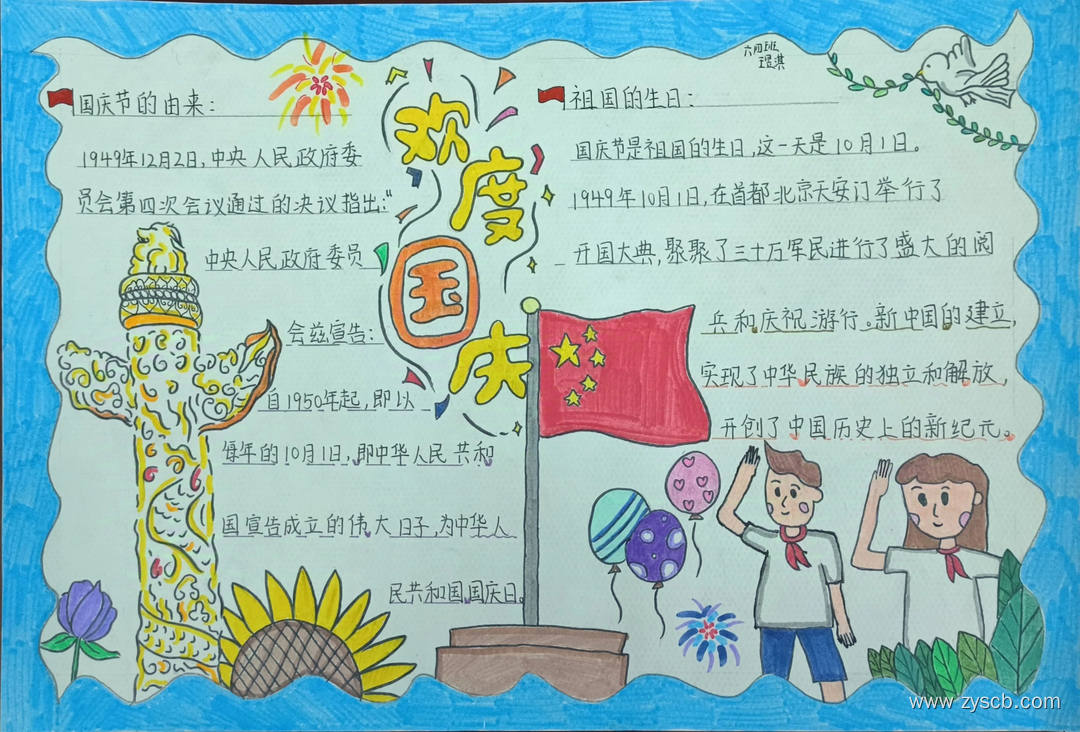 六(四)班
国庆节的由来:
1949年12月2日,中央人民政府委
员会第四次会议通过的决议指出:"
中央人民政府委员
会兹宣告:
自1950年起,即以
每年的10月1日,即中华人民共和
国宣告成立的伟大日子,为中华人
民共和国国庆日。
欢度国庆
祖国的生日:
国庆节是祖国的生日,这一天是10月1日。
1949年10月1日,在首都北京天安门举行了
开国大典,聚聚了三十万军民进行了盛大的阅
兵和庆祝游行。新中国的建立,
实现了中华民族的独立和解放,
开创了中国历史上的新纪元。
www.zyscb.com